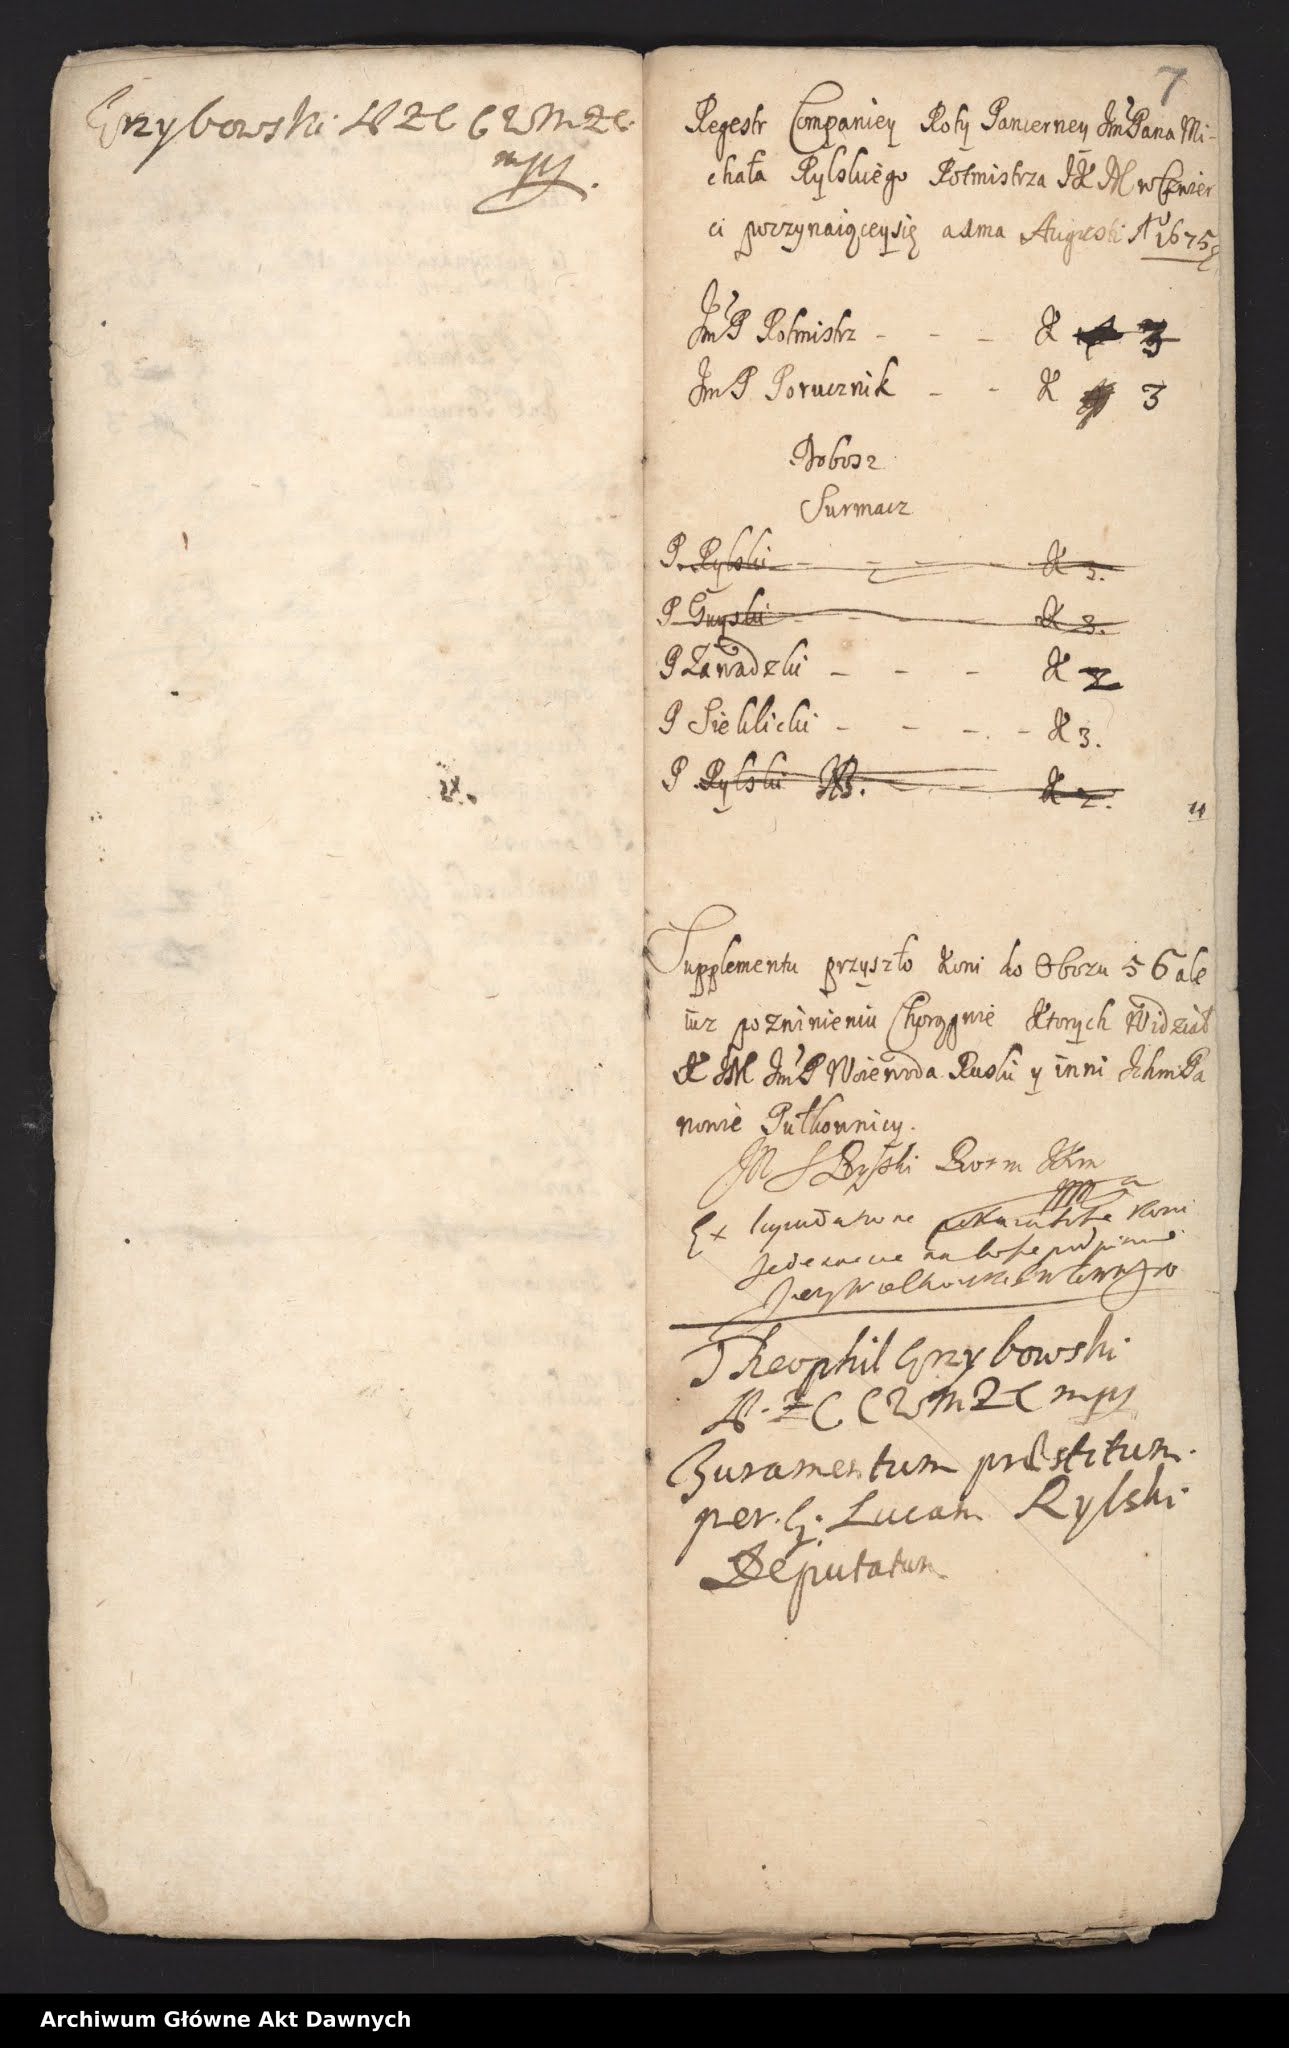 Grzybowski
mpp
7
Regestr Companiey Roty Pancerney JmPana Mi-
chała Rylskiego Rotmistrza JKM w Cwier
ci poczynaiącey się adma Augusti Ao 1675
JmP Rotmistrz - - - K 3
JmP Porucznik - - K 3
Dobosz
Surmacz
P. Rylski - - - - K 3.
P Guyski - - - K 3.
P Zawadzki - - - K 2
P Sieklicki - - - - K 3.
P Rylski - K 2.
11
Supplementu przyszło Koni do Obozu 56 ale
iuz po zninieniu Chorągwie Ktorych Widział
K JM JmP Woiewoda Ruski y inni IchmPa
nowie Pułkownicy.
M S Rylski Rotm JKm
Koni
Jedenascie na
Theophil Grzybowski
mpp
Juramentum præstitum
per G. Lucam Rylski
Deputatum
Archiwum Główne Akt Dawnych